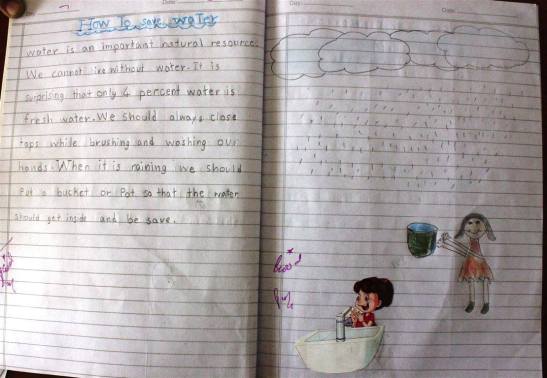 How To save water
water is an important natural resource.
We cannot ive without water. It is
surprising that only 4 percent water is
fresh water. We should always close
taps while brushing and washing our
hands. When it is raining we should
Put a bucket or Pot so that the water
should get inside and be save.